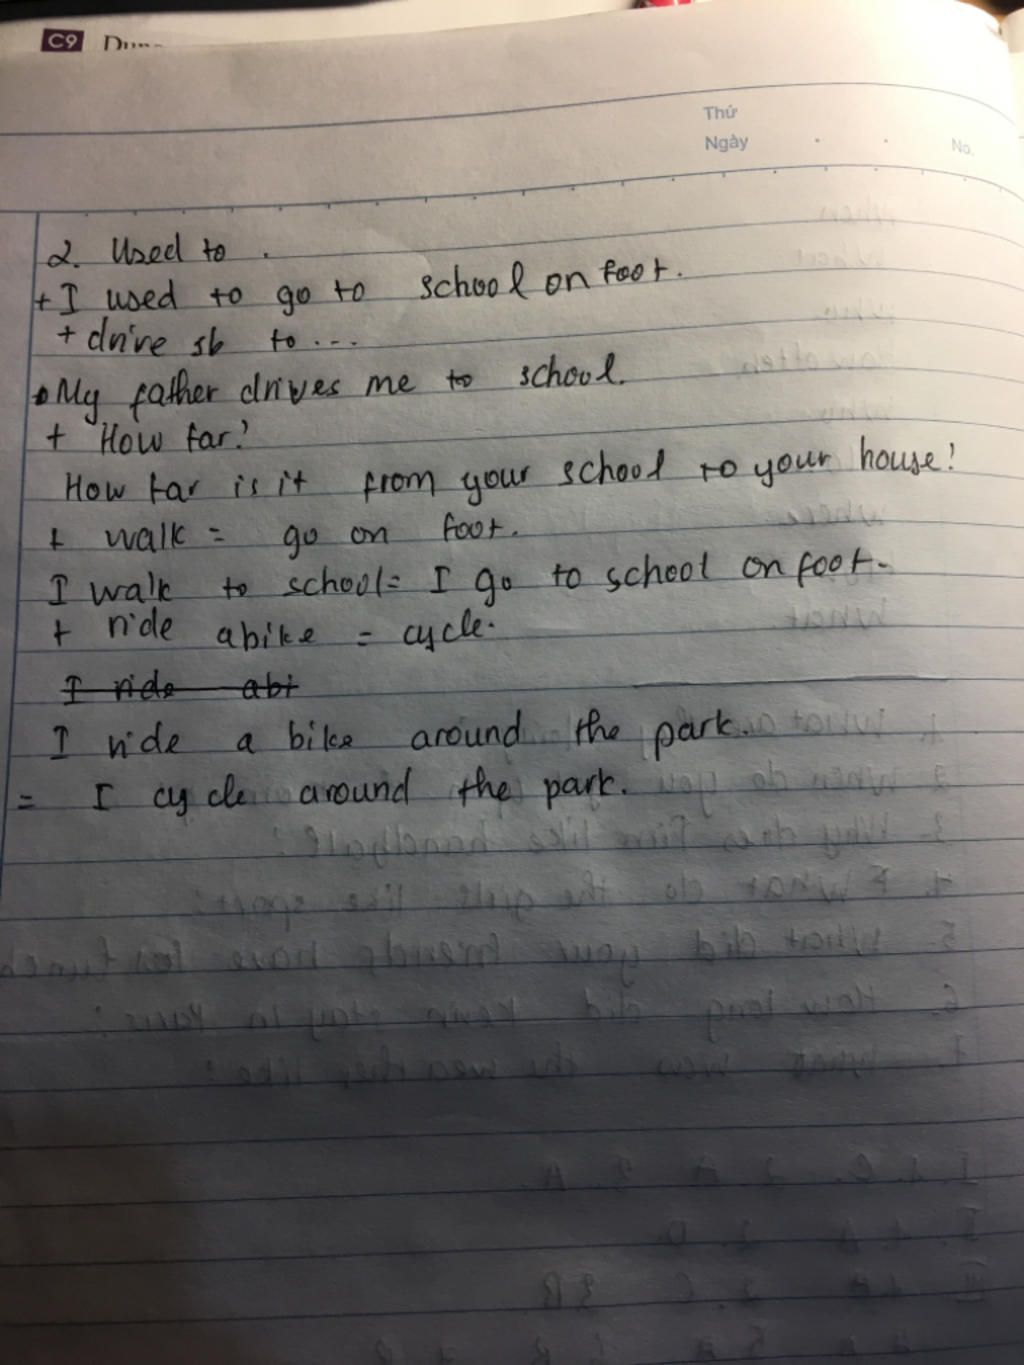 C9
Thứ
Ngày
No.
2. Used to.
+ I used to go to school on foot.
+ drive sb to...
• My father drives me to school.
+ How far?
How far is it from your school to your house?
+ walk = go on foot.
I walk to school = I go to school on foot.
+ ride a bike = cycle.
I ride abi
I ride a bike around the park.
= I cycle around the park.